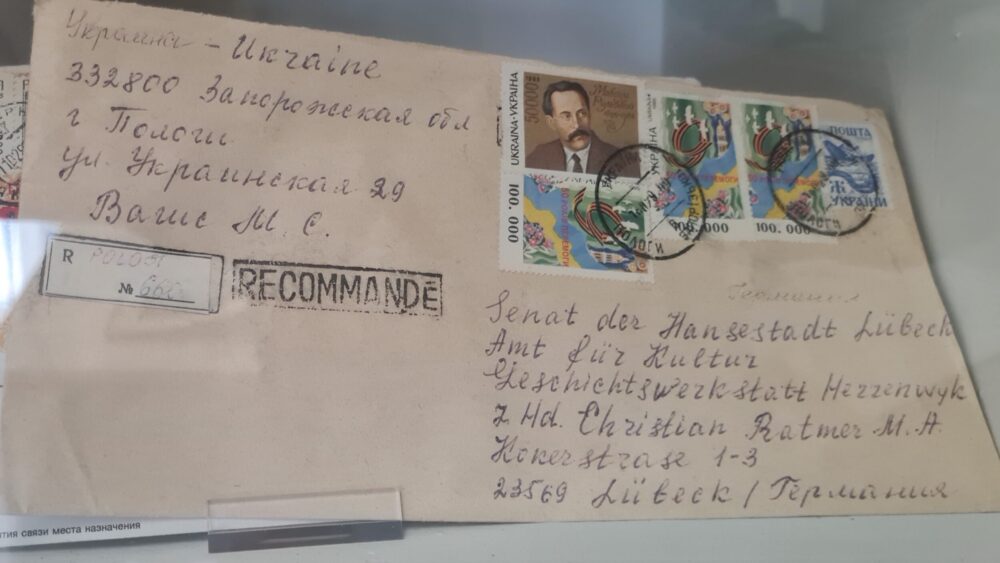 Украина - Ukraine
332800 Запорожская обл
г Пологи
ул. Украинская 29
Вагис М. С.
R POLOGI
№ 660
RECOMMANDÉ
UKRAINA·УКРАЇНА
50000
100.000
УКРАЇНА
100.000
100.000
ПОШТА
УКРАЇНИ
Германия
Senat der Hansestadt Lübeck
Amt für Kultur
Geschichtswerkstatt Herrenwyk
z Hd. Christian Ratmer M. A.
Kokerstrase 1-3
23569 Lübeck / Германия
связи места назначения